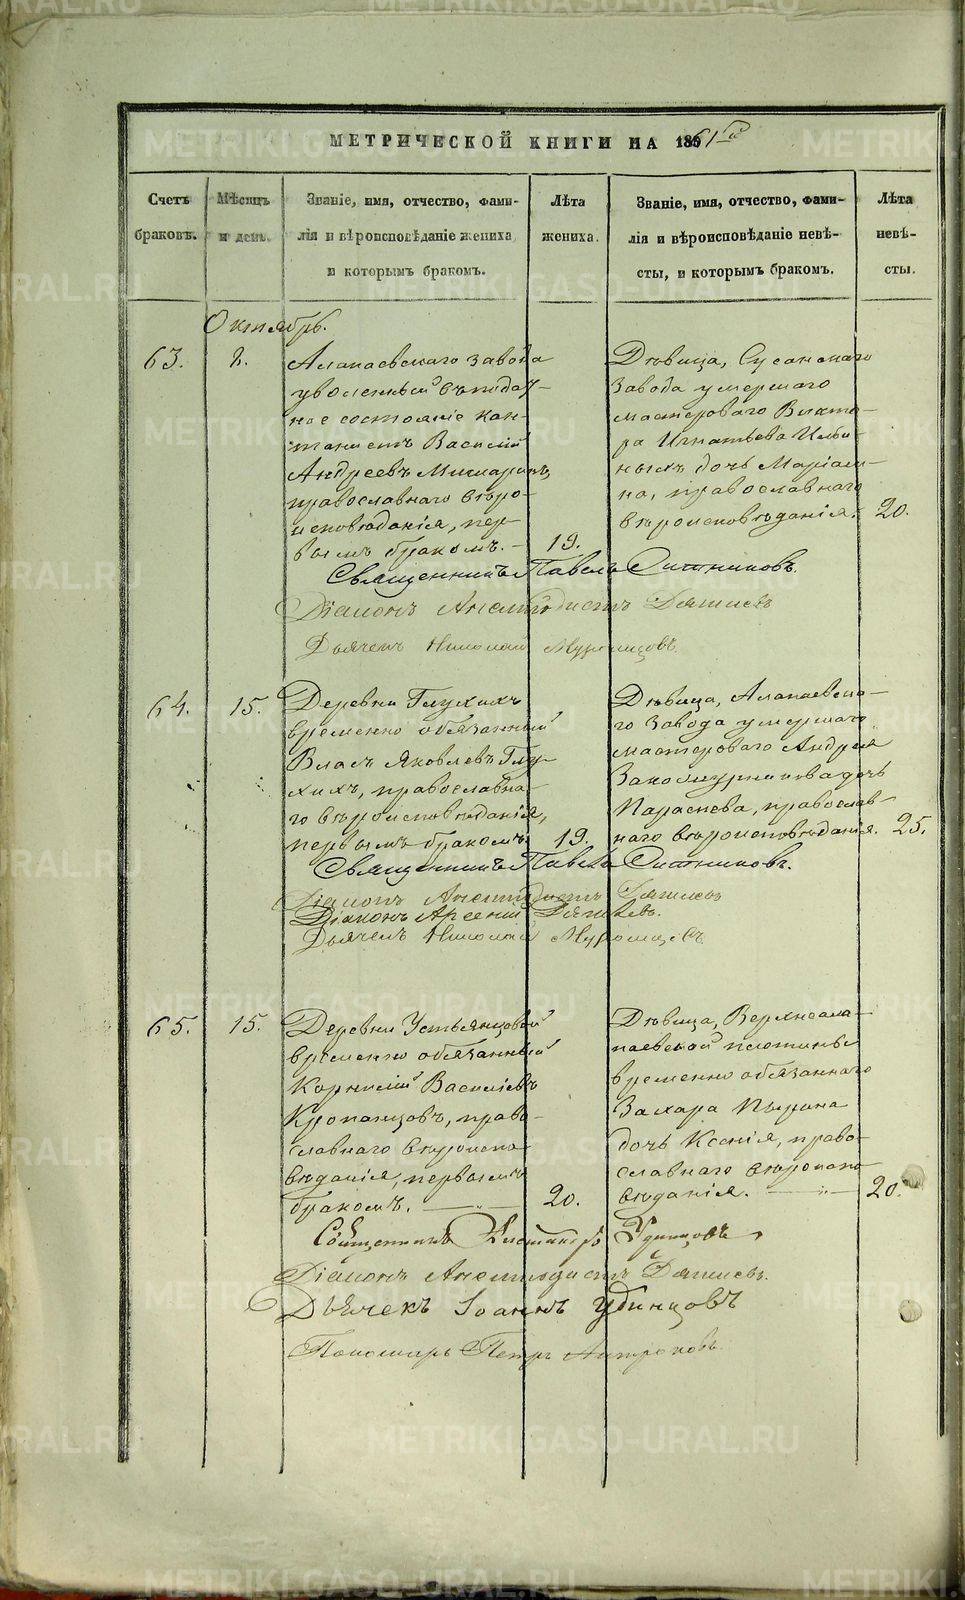 МЕТРИЧЕСКОЙ КНИГИ НА 1861й
Счетъ браковъ.
Мѣсяцъ и день.
Званіе, имя, отчество, фами-
лія и вѣроисповѣданіе жениха
и которымъ бракомъ.
Лѣта жениха.
Званіе, имя, отчество, фами-
лія и вѣроисповѣданіе невѣ-
сты, и которымъ бракомъ.
Лѣта невѣ-
сты.
Октябрь.
63.
8.
Алапаевскаго завода
уволенный въ подат-
ное состояніе кан-
танистъ Василій
Андреевъ
православнаго вѣро-
исповѣданія, пер-
вымъ бракомъ. -
19.
Дѣвица, Сусанскаго
завода умершаго
мастероваго Викто-
ра Игнатьева Ильи-
ныхъ дочь Маріам-
на, православнаго
вѣроисповѣданія.
20.
Священникъ Павелъ Ситниковъ.
Діаконъ Анемподистъ Дягилевъ
Дьячекъ Николай Муромцовъ.
64.
15.
Деревни Глухихъ
временно обязанный
Власъ Яковлевъ Глу-
хихъ, православна-
го вѣроисповѣданія,
первымъ бракомъ.
19.
Дѣвица, Алапаевска-
го завода умершаго
мастероваго Андрея
Закожурникова дочь
Параскева, православ-
наго вѣроисповѣданія.
25.
Священникъ Павелъ Ситниковъ.
Діаконъ Анемподистъ Дягилевъ
Діаконъ Арсеній Дягилевъ.
Дьячекъ Николай Муромцовъ
65.
15.
Деревни Устьянцовой
временно обязанный
Корнилій Василіевъ
Кропанцовъ, право-
славнаго вѣроиспо-
вѣданія, первымъ
бракомъ.
20.
Дѣвица, Верхнеала-
паевской плотины
временно обязаннаго
Захара Пырина
дочь Ксенія, право-
славнаго вѣроиспо-
вѣданія.
20.
Священникъ Александръ Удинцовъ
Діаконъ Анемподистъ Дягилевъ.
Дьячекъ Іоаннъ Удинцовъ
Пономарь Петръ Антроповъ.
METRIKI.GASO-URAL.RU